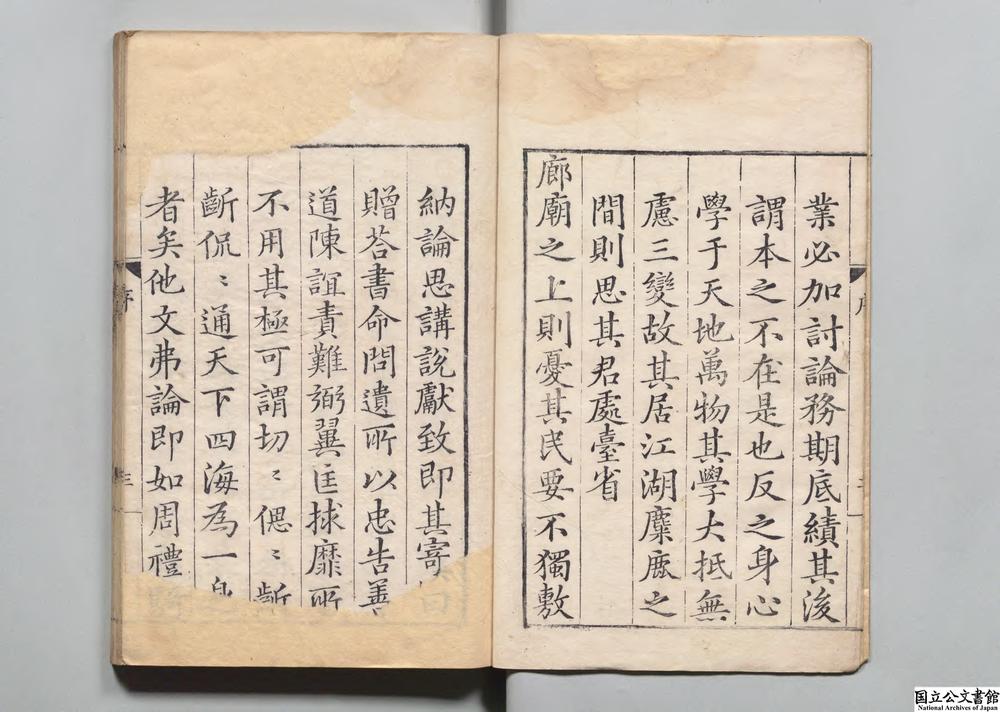 業必加討論務期底績其後
謂本之不在是也反之身心
學于天地萬物其學大抵無
慮三變故其居江湖麋鹿之
間則思其君處臺省
廊廟之上則憂其民要不獨敷
納論思講說獻致即其寄
贈荅書命問遺所以忠告善
道陳誼責難弼翼匡捄靡所
不用其極可謂切〻偲〻斷
斷侃〻通天下四海為一身
者矣他文弗論即如周禮
序
三
国立公文書館
National Archives of Japan